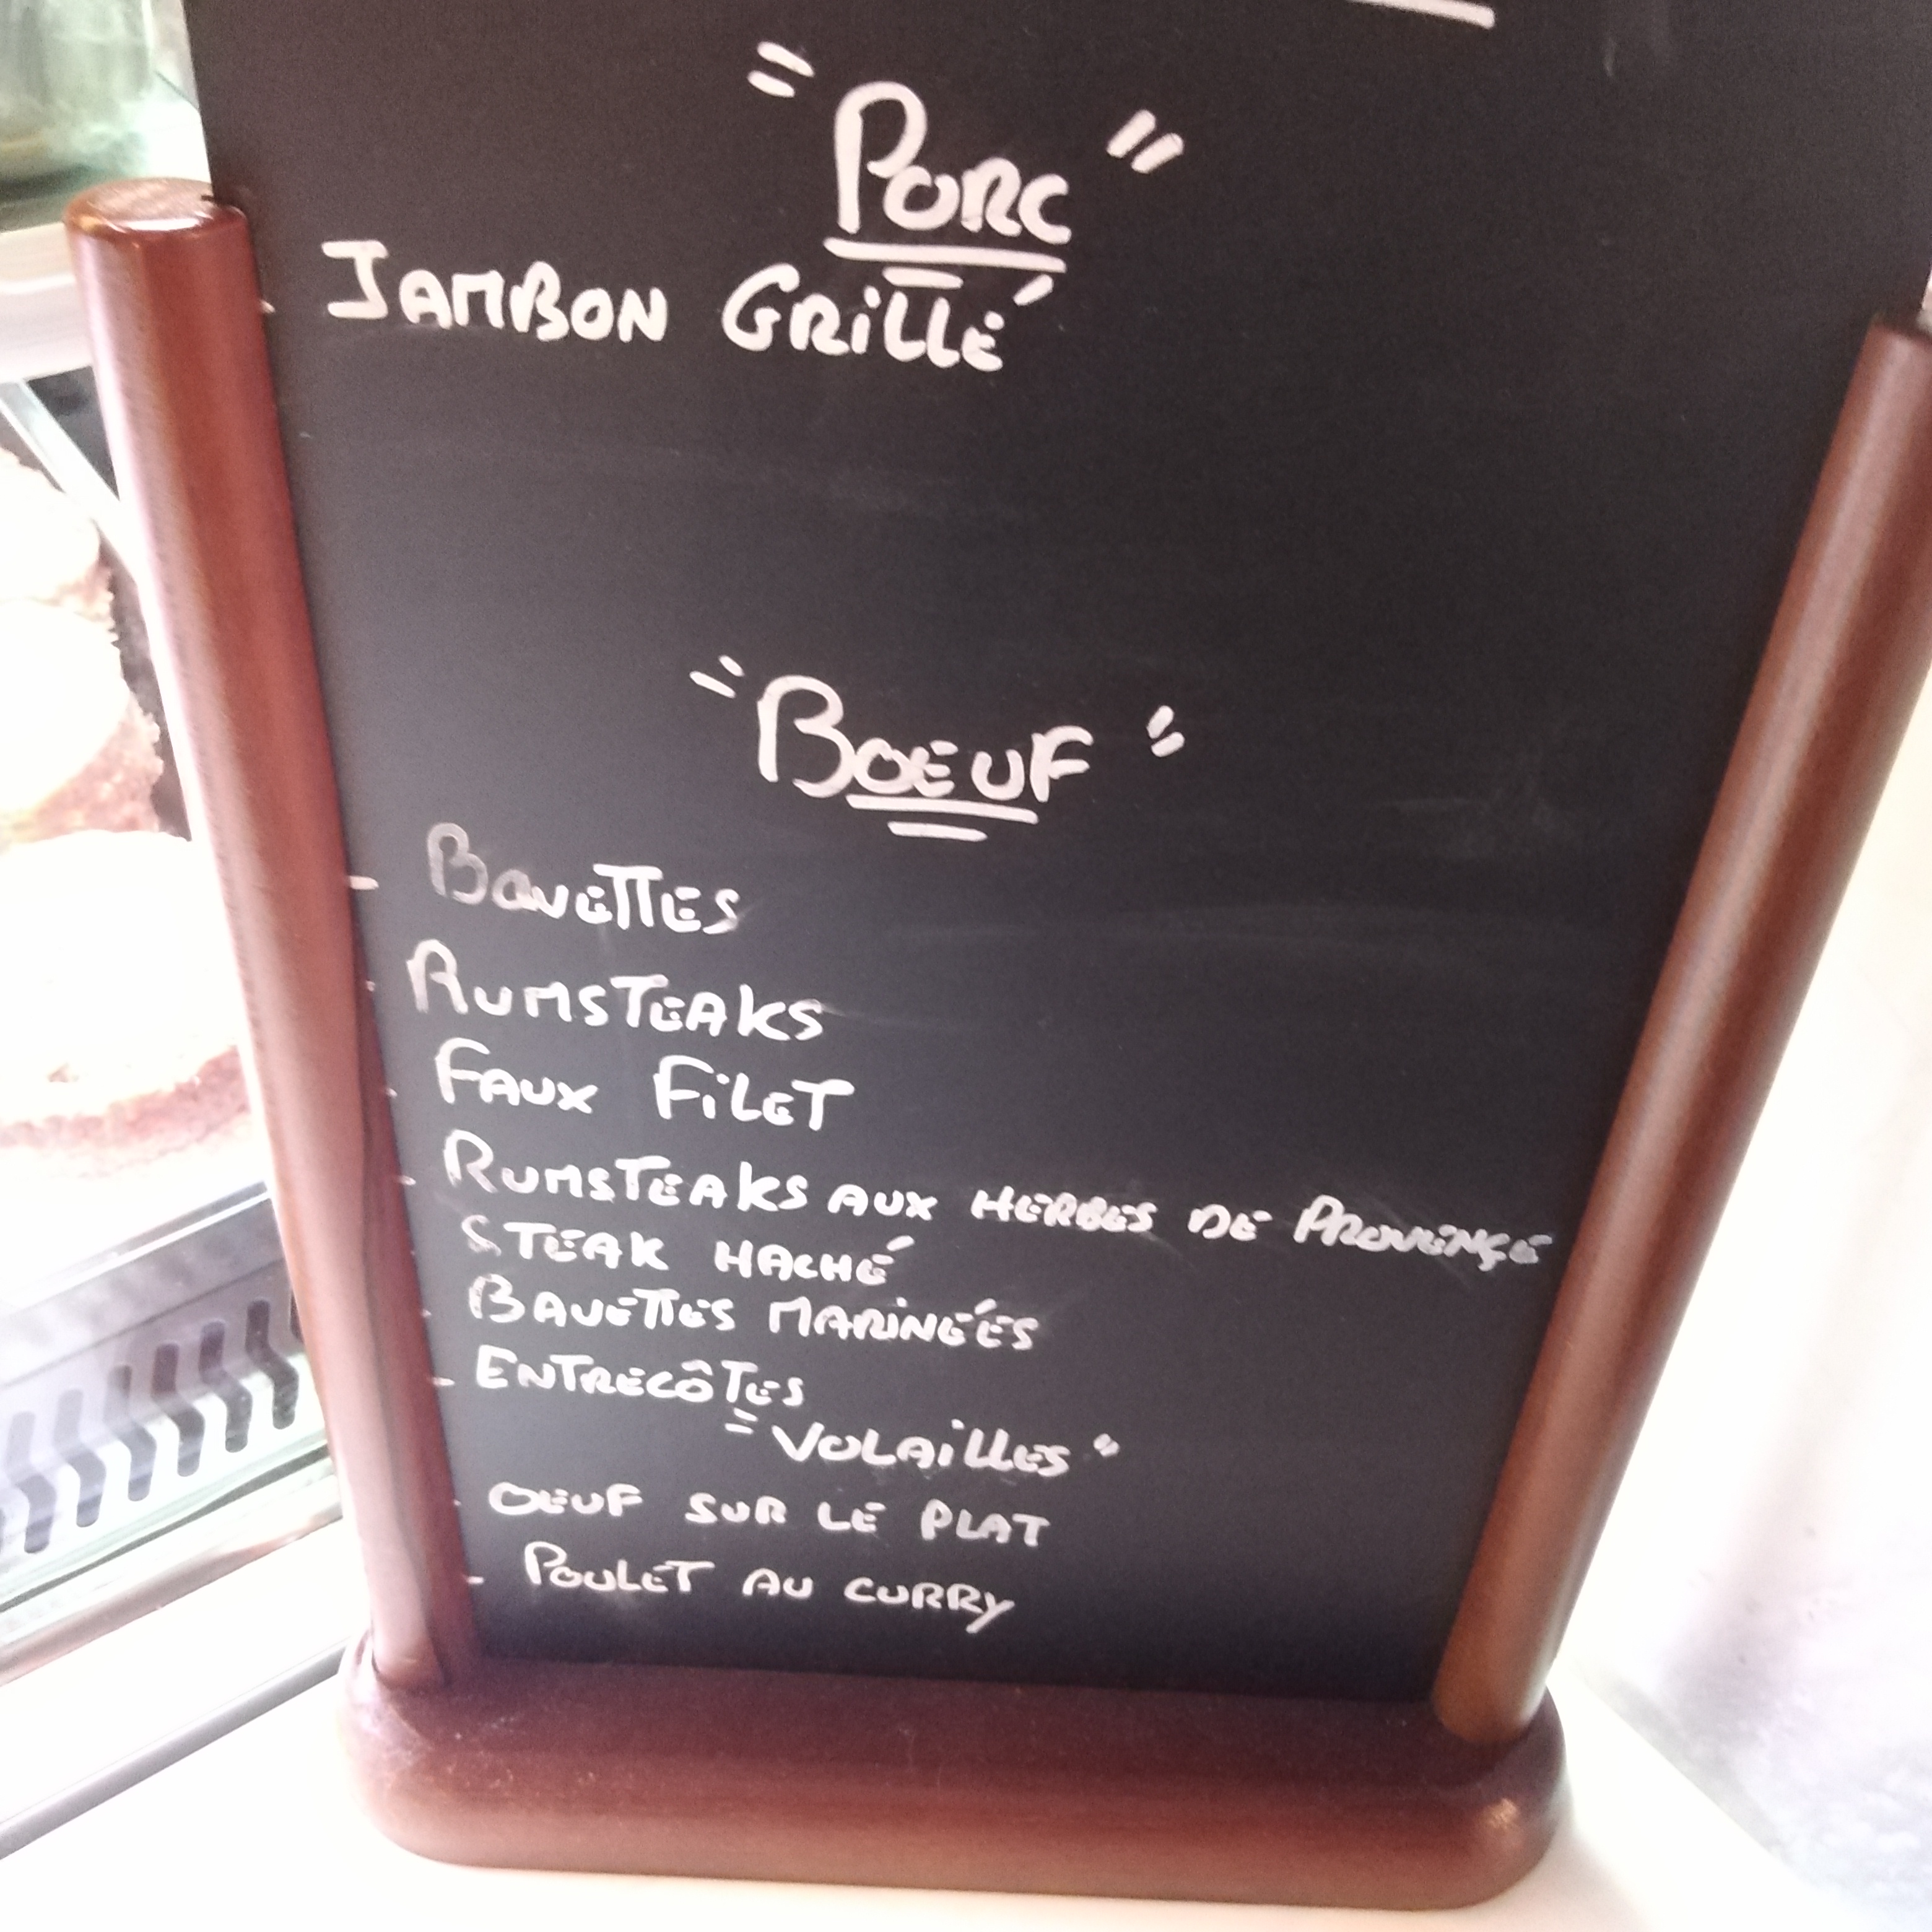 "Porc"
- Jambon Grillé
"Boeuf"
- Bavettes
- Rumsteaks
- Faux Filet
- Rumsteaks aux herbes de Provençe
- Steak haché
- Bavettes marinées
- Entrecôtes
"Volailles"
- Oeuf sur le plat
- Poulet au curry